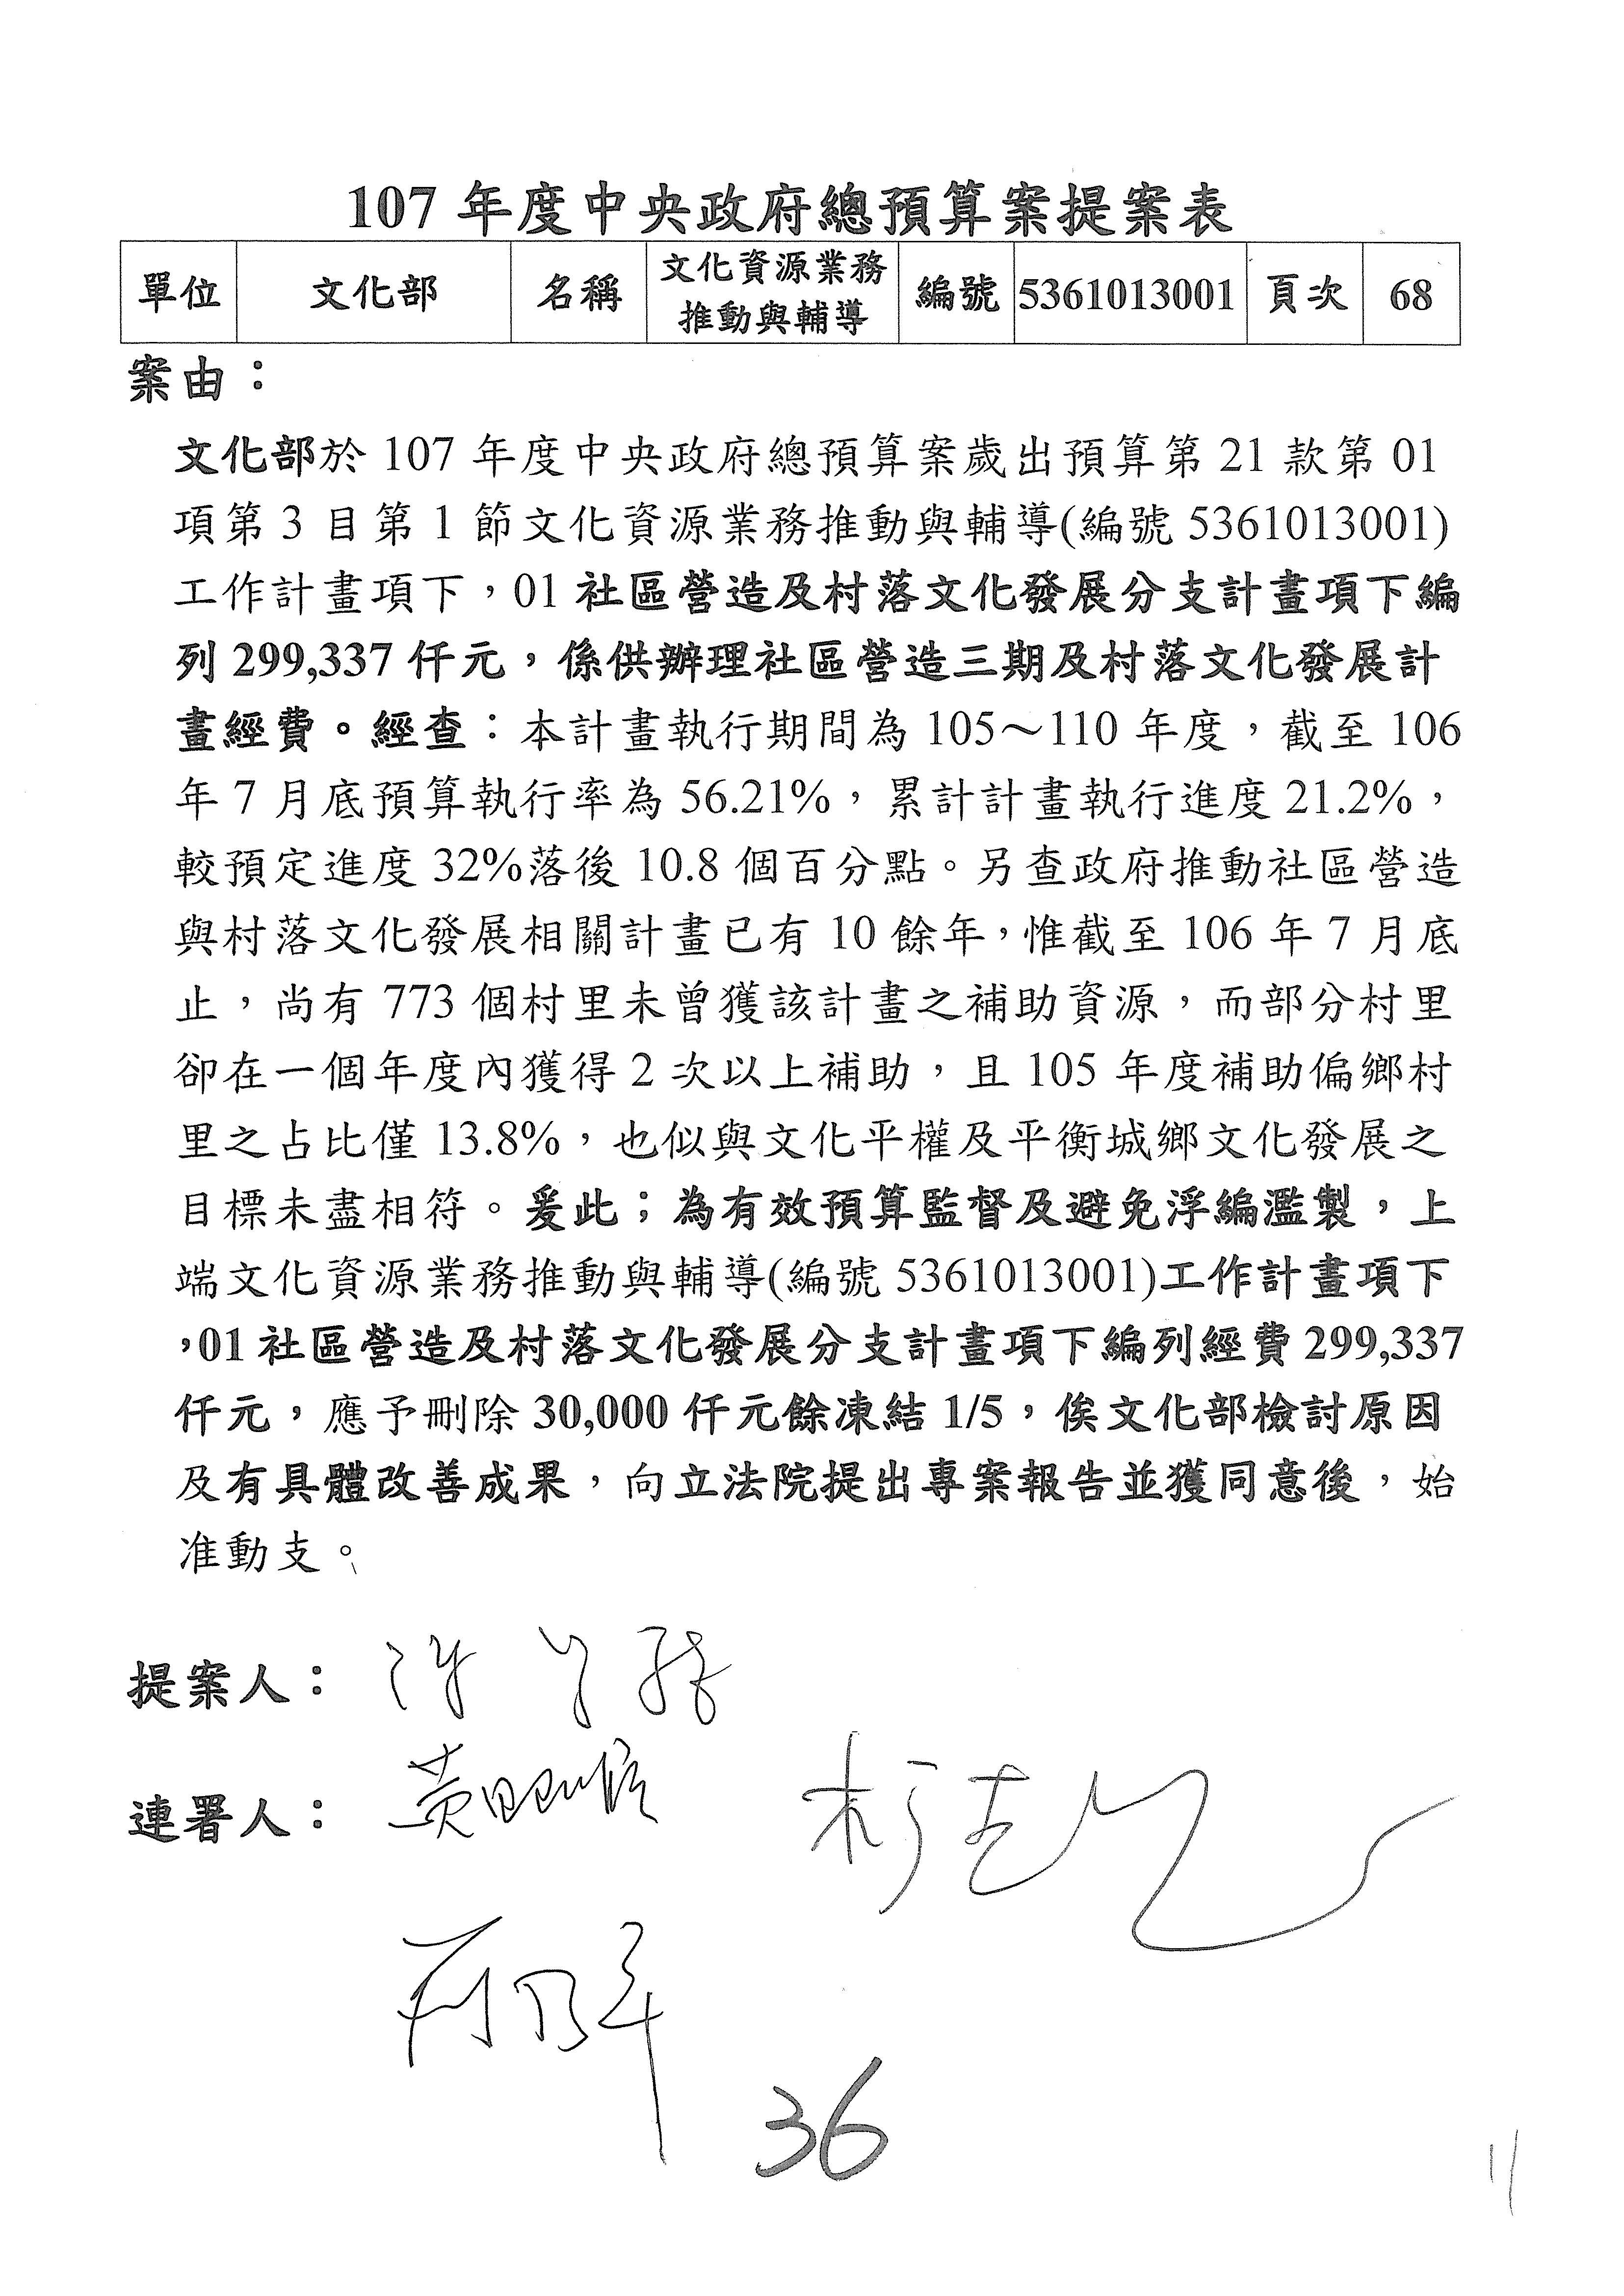 107 年度中央政府總預算案提案表
單位 文化部 名稱 文化資源業務推動與輔導 編號 5361013001 頁次 68
案由：
文化部於 107 年度中央政府總預算案歲出預算第 21 款第 01
項第 3 目第 1 節文化資源業務推動與輔導(編號 5361013001)
工作計畫項下，01 社區營造及村落文化發展分支計畫項下編
列 299,337 仟元，係供辦理社區營造三期及村落文化發展計
畫經費。經查：本計畫執行期間為 105～110 年度，截至 106
年 7 月底預算執行率為 56.21%，累計計畫執行進度 21.2%，
較預定進度 32%落後 10.8 個百分點。另查政府推動社區營造
與村落文化發展相關計畫已有 10 餘年，惟截至 106 年 7 月底
止，尚有 773 個村里未曾獲該計畫之補助資源，而部分村里
卻在一個年度內獲得 2 次以上補助，且 105 年度補助偏鄉村
里之占比僅 13.8%，也似與文化平權及平衡城鄉文化發展之
目標未盡相符。爰此；為有效預算監督及避免浮編濫製，上
端文化資源業務推動與輔導(編號 5361013001)工作計畫項下
，01 社區營造及村落文化發展分支計畫項下編列經費 299,337
仟元，應予刪除 30,000 仟元餘凍結 1/5，俟文化部檢討原因
及有具體改善成果，向立法院提出專案報告並獲同意後，始
准動支。
提案人：
連署人： 黃昭順 柯志恩
36
11